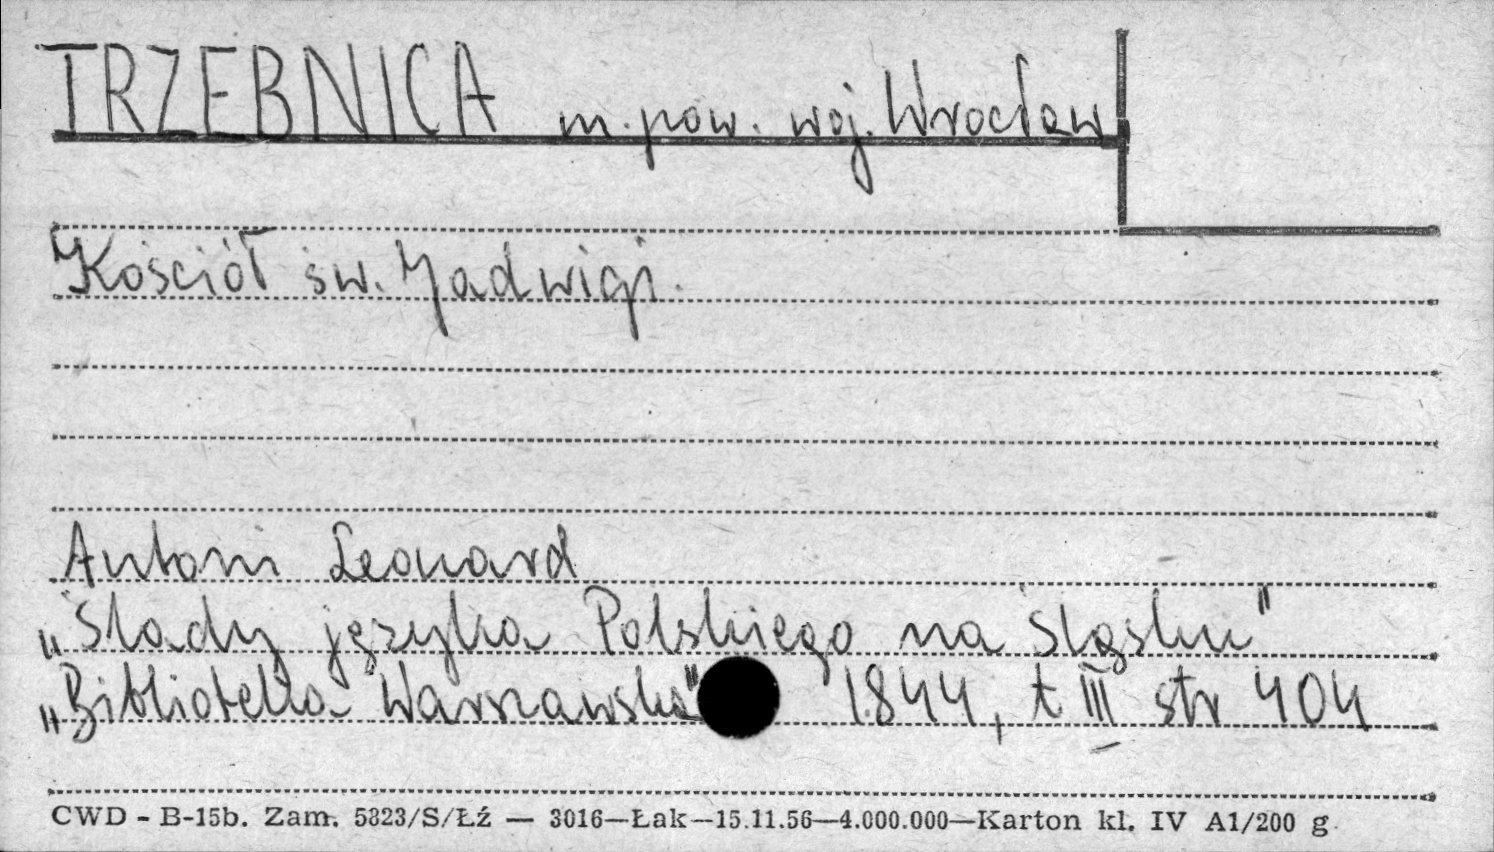 TRZEBNICA m. pow. woj. Wrocław
Kościół św. Jadwigi.
Antoni Leonard
„Ślady języka Polskiego na Śląsku"
„Biblioteka Warszawska" 1844, t III str 404
CWD - B-15b. Zam. 5323/S/Łź — 3016—Łak—15.11.56—4.000.000—Karton kl. IV A1/200 g